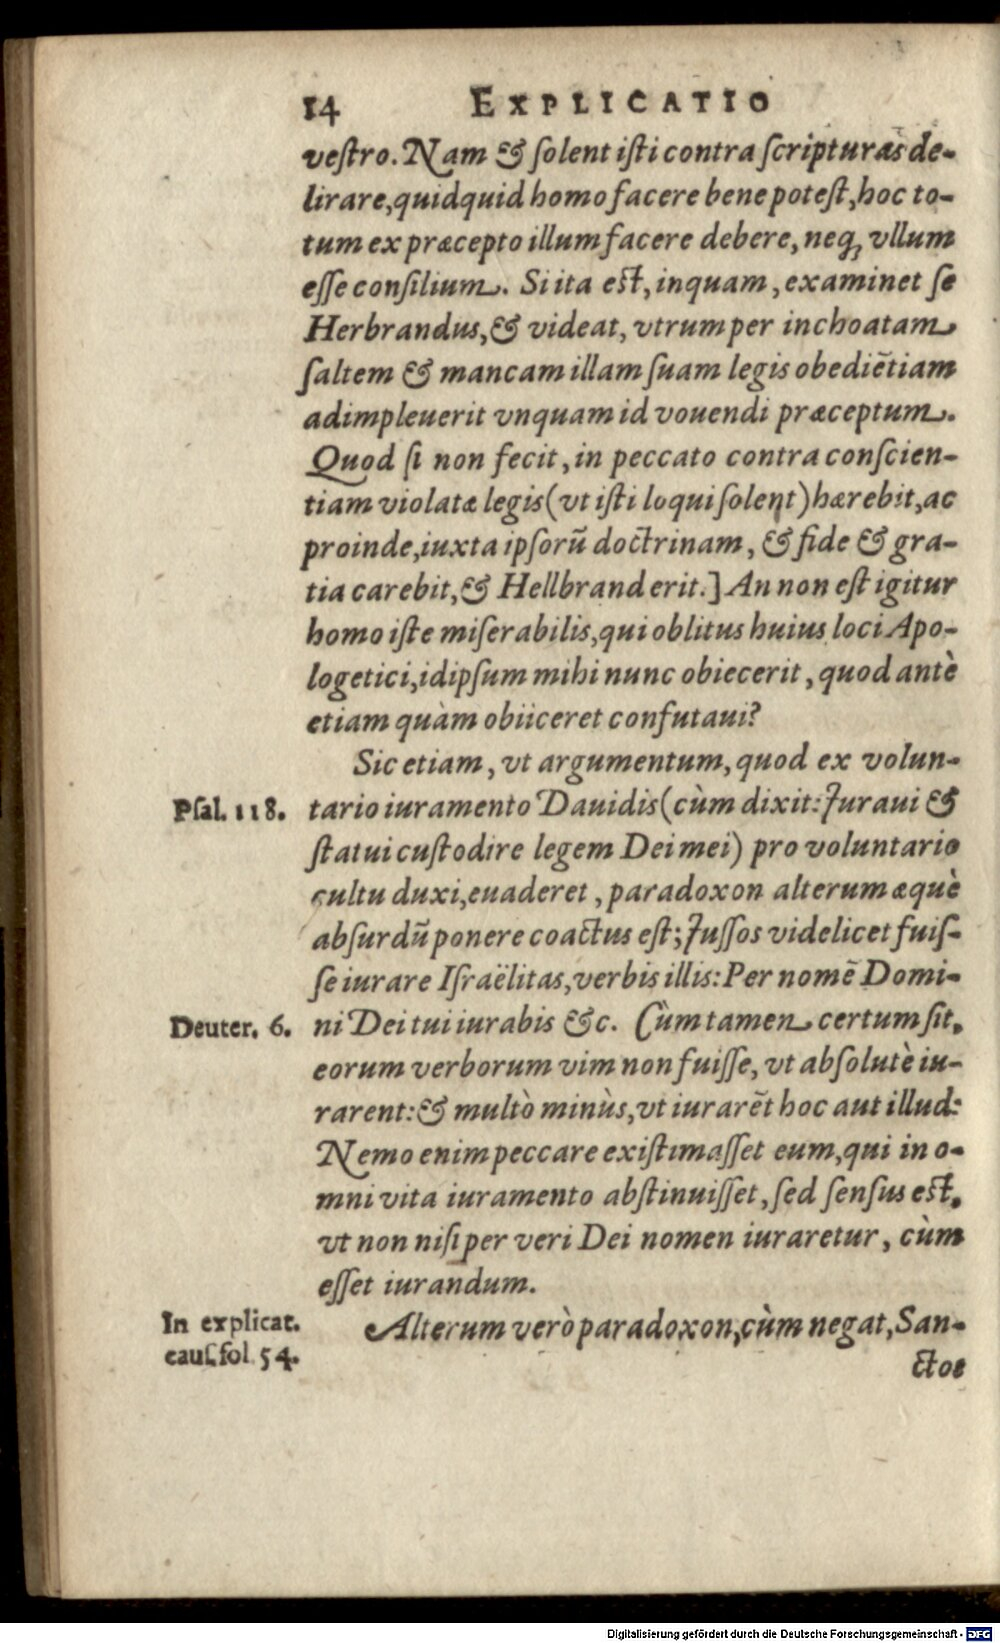 14 EXPLICATIO
veſtro. Nam & ſolent iſti contra ſcripturas de-
lirare, quidquid homo facere bene poteſt, hoc to-
tum ex præcepto illum facere debere, neq; vllum
eſſe conſilium. Si ita eſt, inquam, examinet ſe
Herbrandus, & videat, vtrum per inchoatam
ſaltem & mancam illam ſuam legis obediẽtiam
adimpleuerit vnquam id vouendi præceptum.
Quod ſi non fecit, in peccato contra conſcien-
tiam violatæ legis (vt iſti loqui ſolent) hærebit, ac
proinde, iuxta ipſorũ doctrinam, & fide & gra-
tia carebit, & Hellbrand erit.] An non eſt igitur
homo iſte miſerabilis, qui oblitus huius loci Apo-
logetici, idipſum mihi nunc obiecerit, quod antè
etiam quàm obiiceret confutaui?
Sic etiam, vt argumentum, quod ex volun-
Pſal. 118. tario iuramento Dauidis (cùm dixit: Iuraui &
ſtatui cuſtodire legem Dei mei) pro voluntario
cultu duxi, euaderet, paradoxon alterum æquè
abſurdũ ponere coactus eſt; Iuſſos videlicet fuiſ-
ſe iurare Iſraëlitas, verbis illis: Per nomẽ Domi-
Deuter. 6. ni Dei tui iurabis &c. Cùm tamen certum ſit,
eorum verborum vim non fuiſſe, vt abſolutè iu-
rarent: & multò minùs, vt iurarẽt hoc aut illud:
Nemo enim peccare exiſtimaſſet eum, qui in o-
mni vita iuramento abſtinuiſſet, ſed ſenſus eſt,
vt non niſi per veri Dei nomen iuraretur, cùm
eſſet iurandum.
In explicat. Alterum verò paradoxon, cùm negat, San-
cauſ. fol. 54. ctos
Digitalisierung gefördert durch die Deutsche Forschungsgemeinschaft - DFG